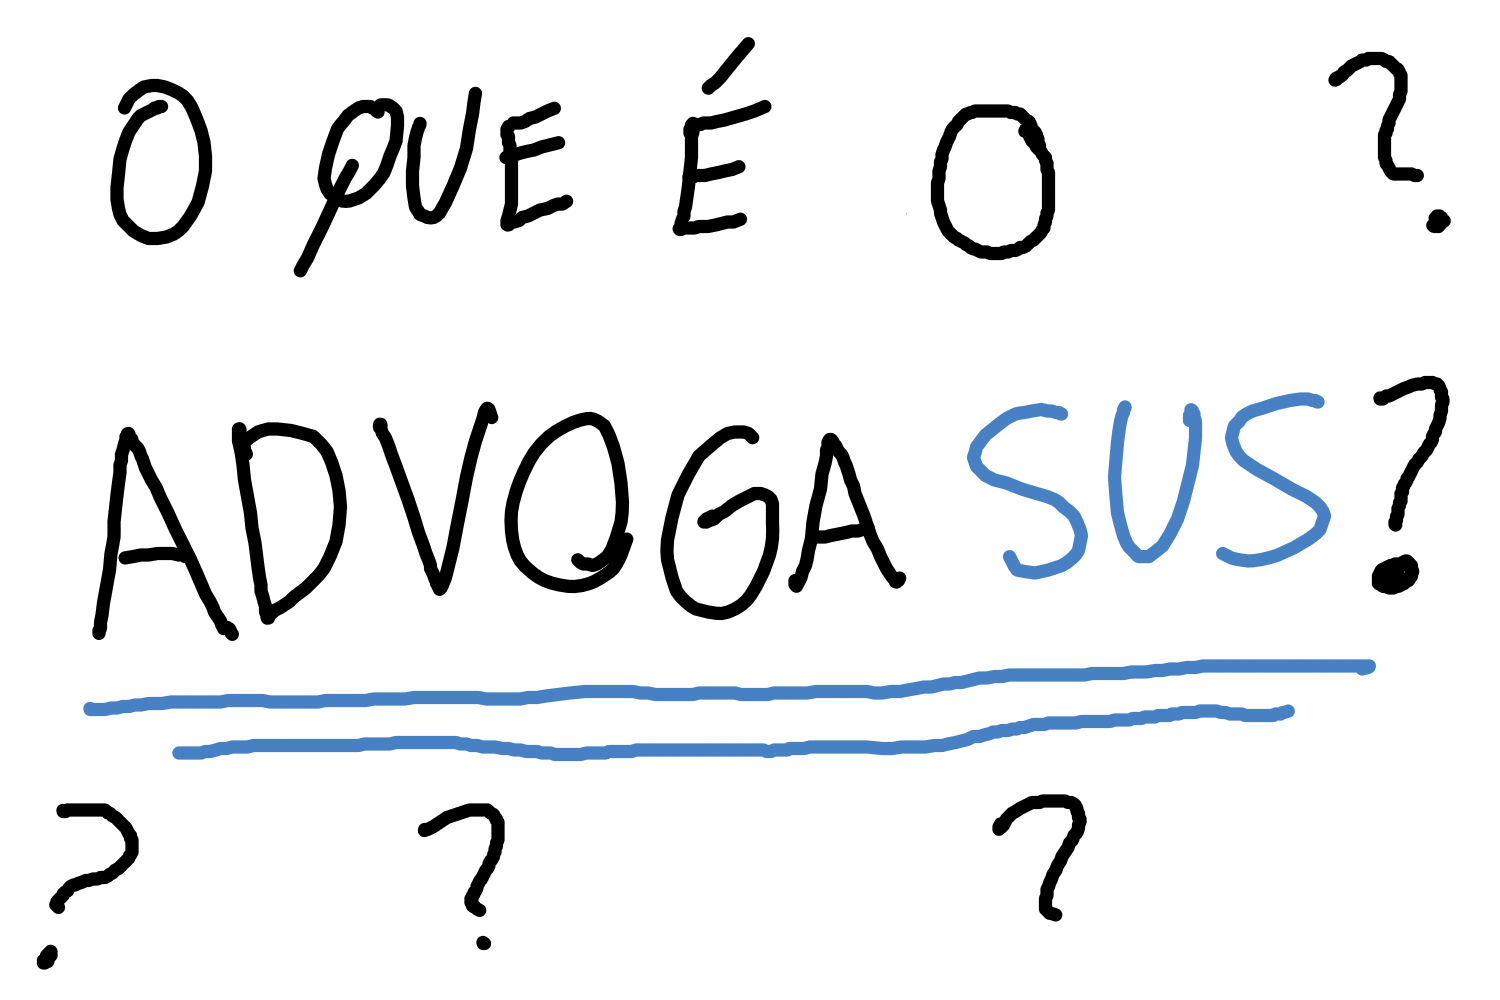 O QUE É O ?
ADVOGASUS?
? ? ?